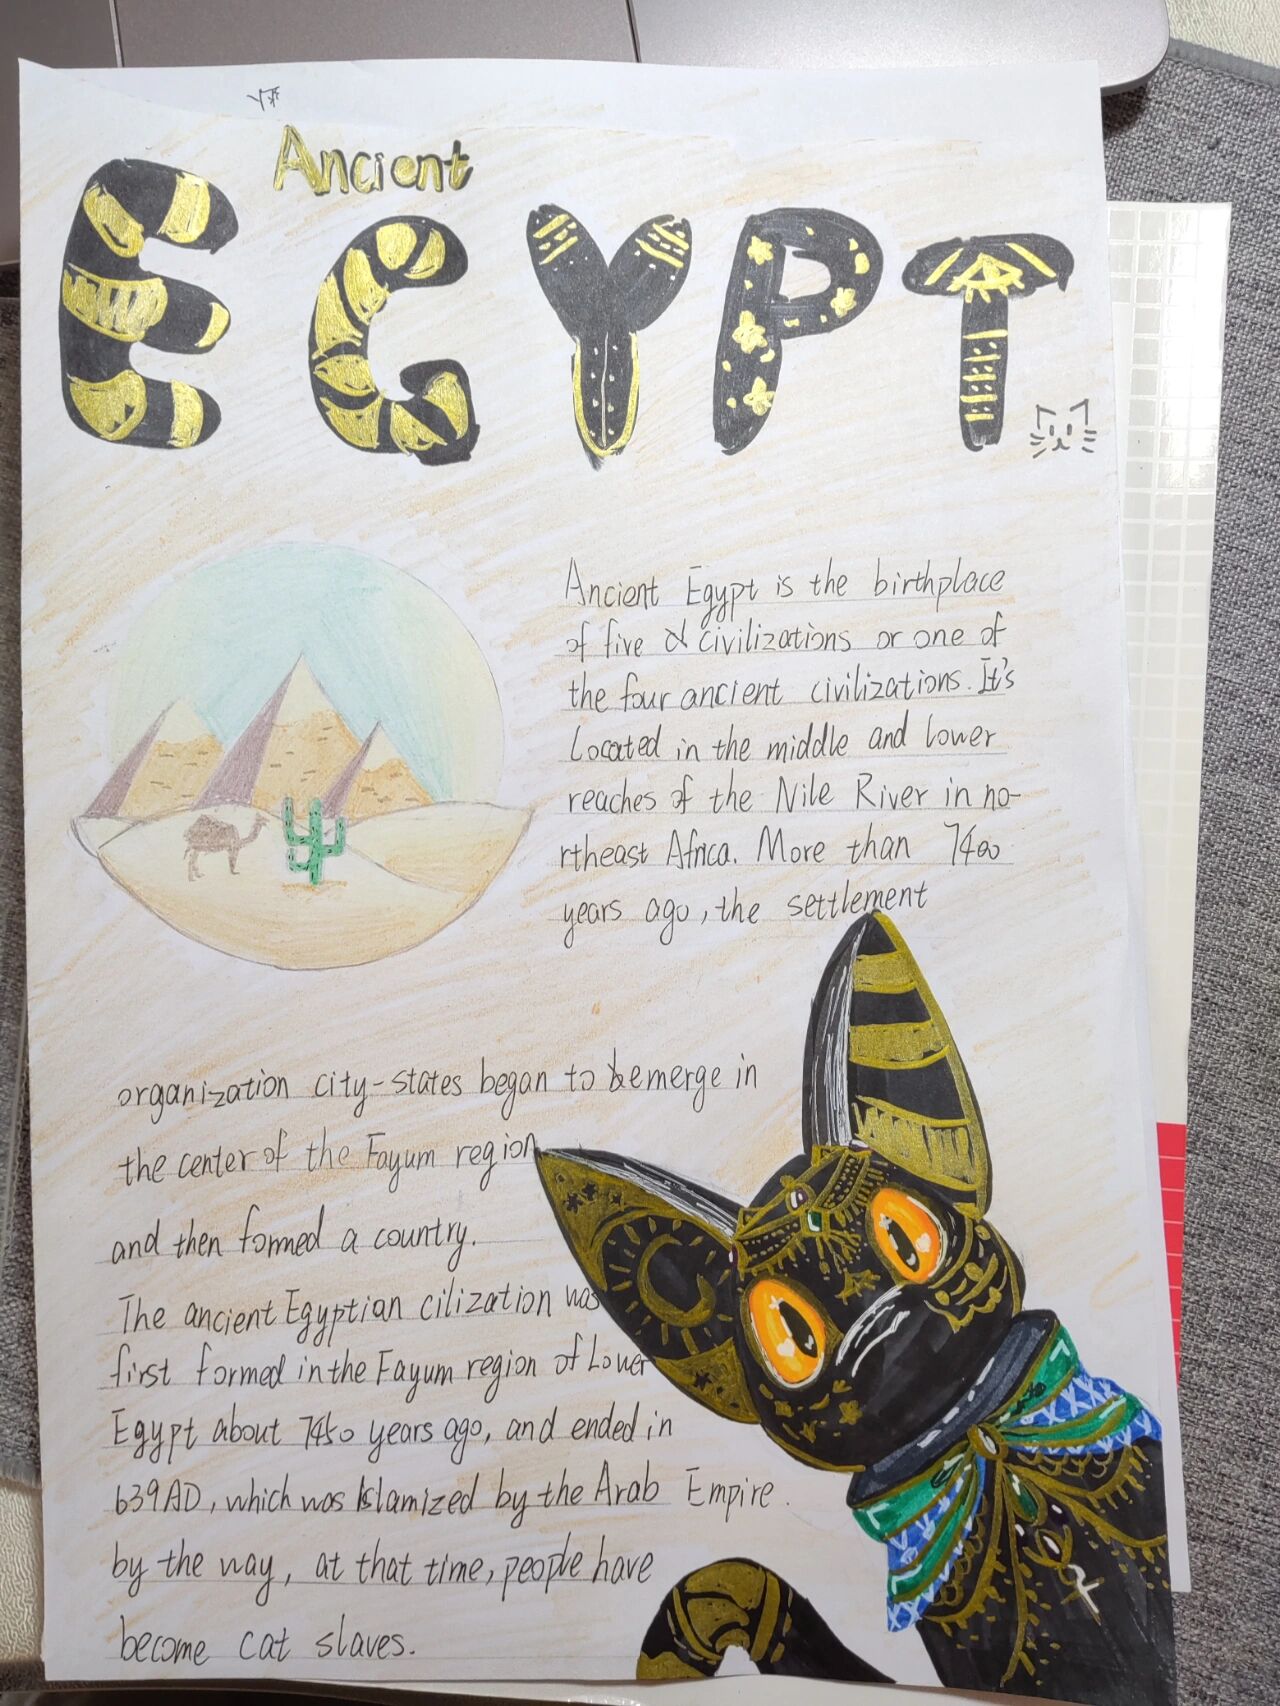 Ancient
EGYPT
Ancient Egypt is the birthplace
of five civilizations or one of
the four ancient civilizations. It's
Located in the middle and lower
reaches of the Nile River in no-
rtheast Africa. More than 7400
years ago, the settlement
organization city-states began to emerge in
the center of the Fayum region
and then formed a country.
The ancient Egyptian cilization was
first formed in the Fayum region of Lower
Egypt about 7450 years ago, and ended in
639AD, which was Islamized by the Arab Empire.
by the way, at that time, people have
become cat slaves.